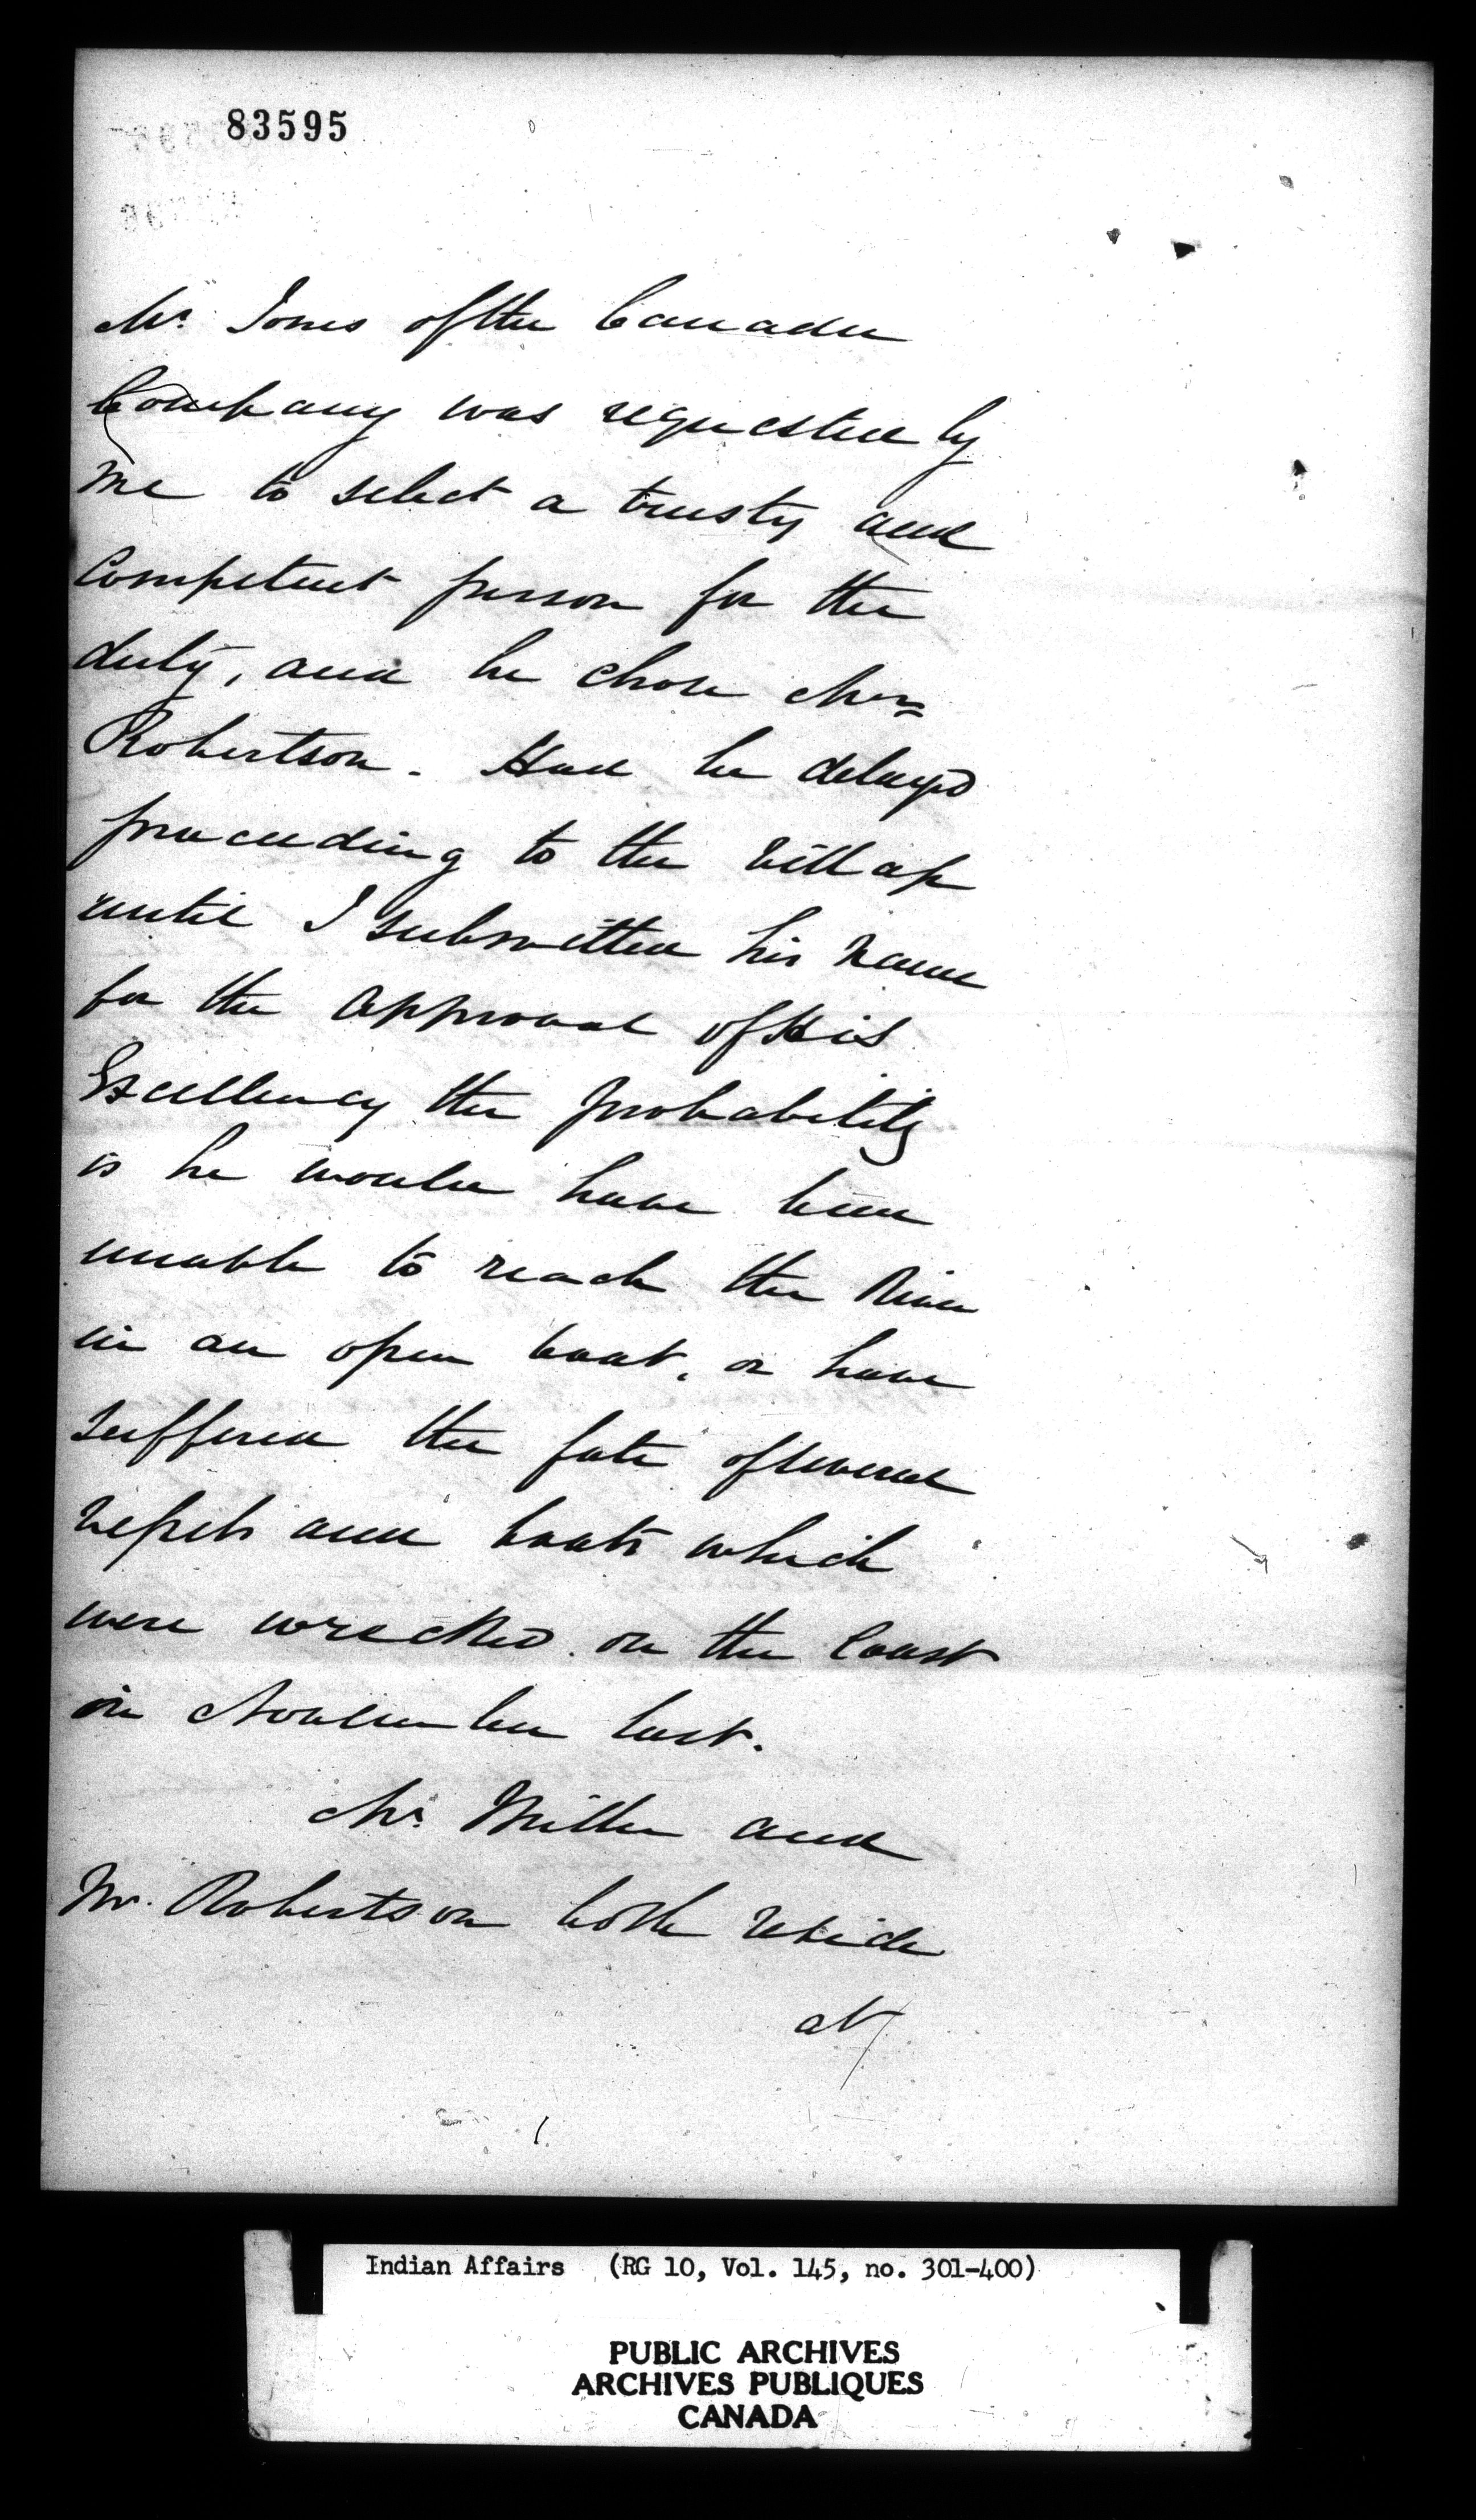 83595
Mr. Jones of the Canada
Company was requested by
me to select a trusty and
Competent person for the
duty, and he chose Mr.
Robertson. Had he delayed
proceeding to the Village
until I submitted his name
for the approval of His
Excellency the probability
is he would have been
unable to reach the River
in an open boat, or have
suffered the fate of several
vessels and boats which
were wrecked on the Coast
in November last.
Mr. Miller and
Mr. Robertson both reside
at
Indian Affairs (RG 10, Vol. 145, no. 301-400)
PUBLIC ARCHIVES
ARCHIVES PUBLIQUES
CANADA